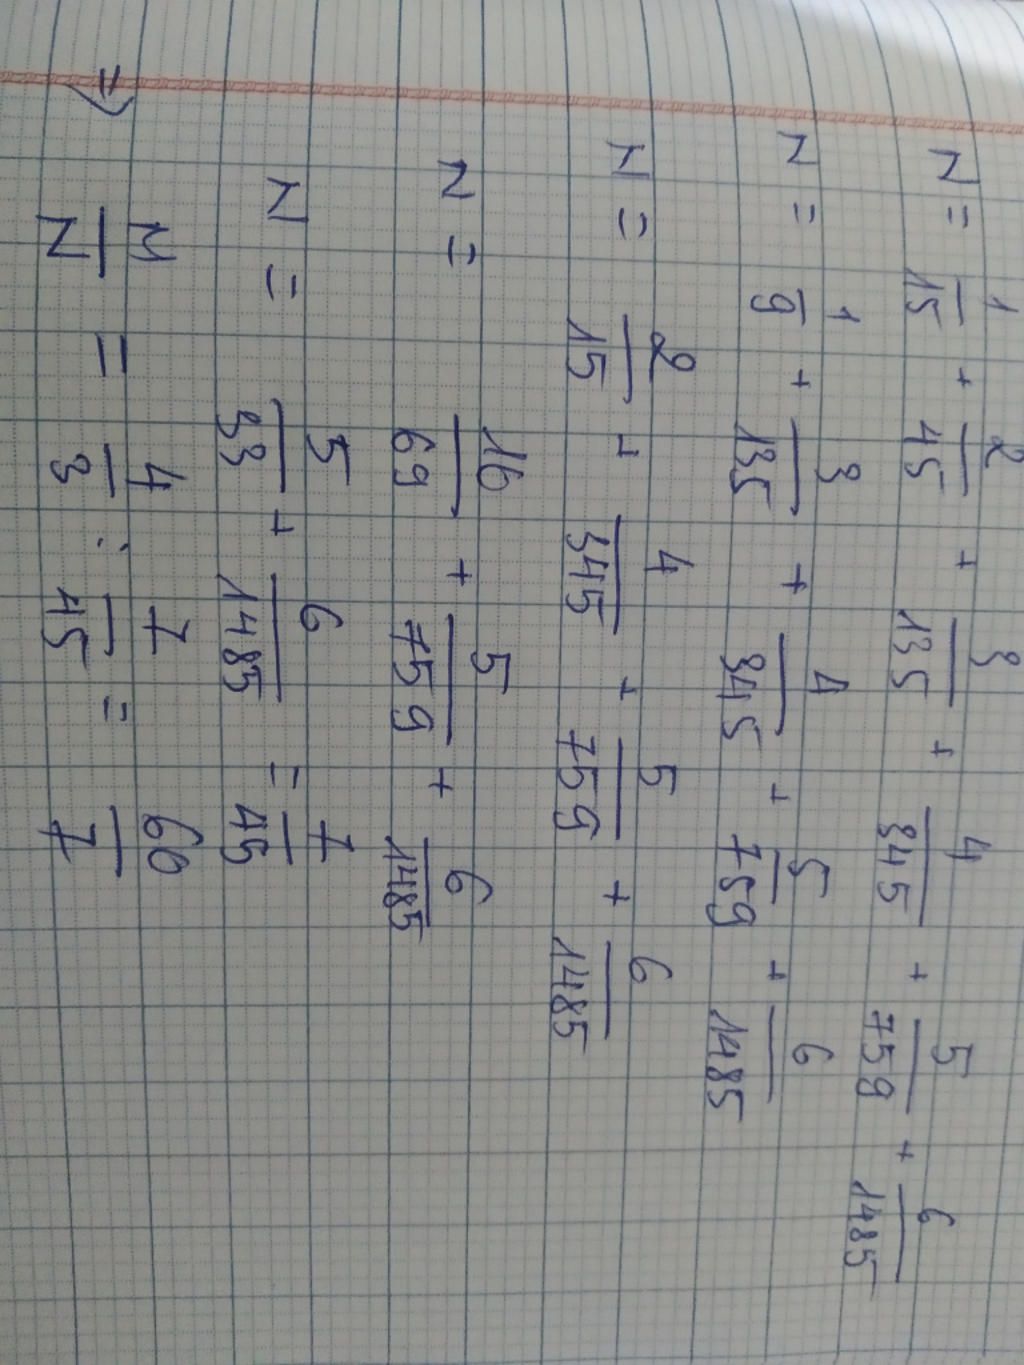 N = 1/15 + 2/45 + 3/135 + 4/345 + 5/759 + 6/1485
N = 1/9 + 3/135 + 4/345 + 5/759 + 6/1485
N = 2/15 + 4/345 + 5/759 + 6/1485
N = 16/69 + 5/759 + 6/1485
N = 5/33 + 6/1485 = 7/45
=> M/N = 4/3 : 7/45 = 60/7